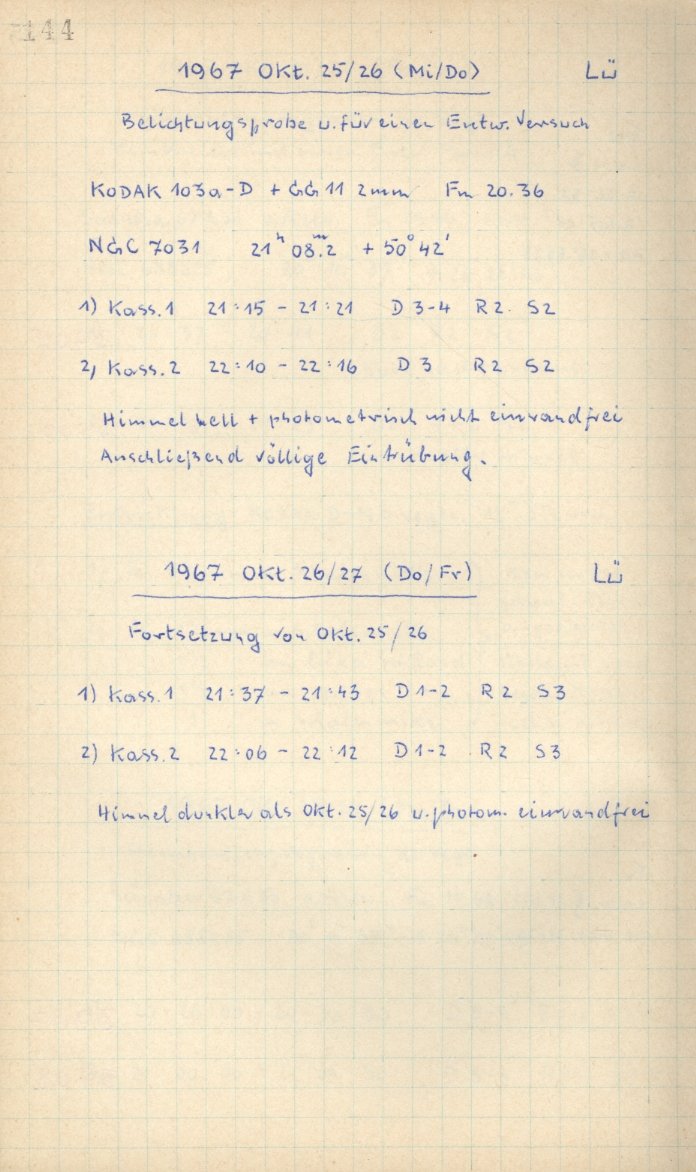 144
1967 Okt. 25/26 (Mi/Do) Lü
Belichtungsprobe u. für einen Entw. Versuch
KODAK 103a-D + GG 11 2mm Fm 20.36
NGC 7031 21ʰ 08ᵐ.2 + 50° 42'
1) Kass. 1 21:15 - 21:21 D 3-4 R 2 S 2
2) Kass. 2 22:10 - 22:16 D 3 R 2 S 2
Himmel hell + photometrisch nicht einwandfrei
Anschließend völlige Eintrübung.
1967 Okt. 26/27 (Do/Fr) Lü
Fortsetzung von Okt. 25/26
1) Kass. 1 21:37 - 21:43 D 1-2 R 2 S 3
2) Kass. 2 22:06 - 22:12 D 1-2 R 2 S 3
Himmel dunkler als Okt. 25/26 u. photom. einwandfrei